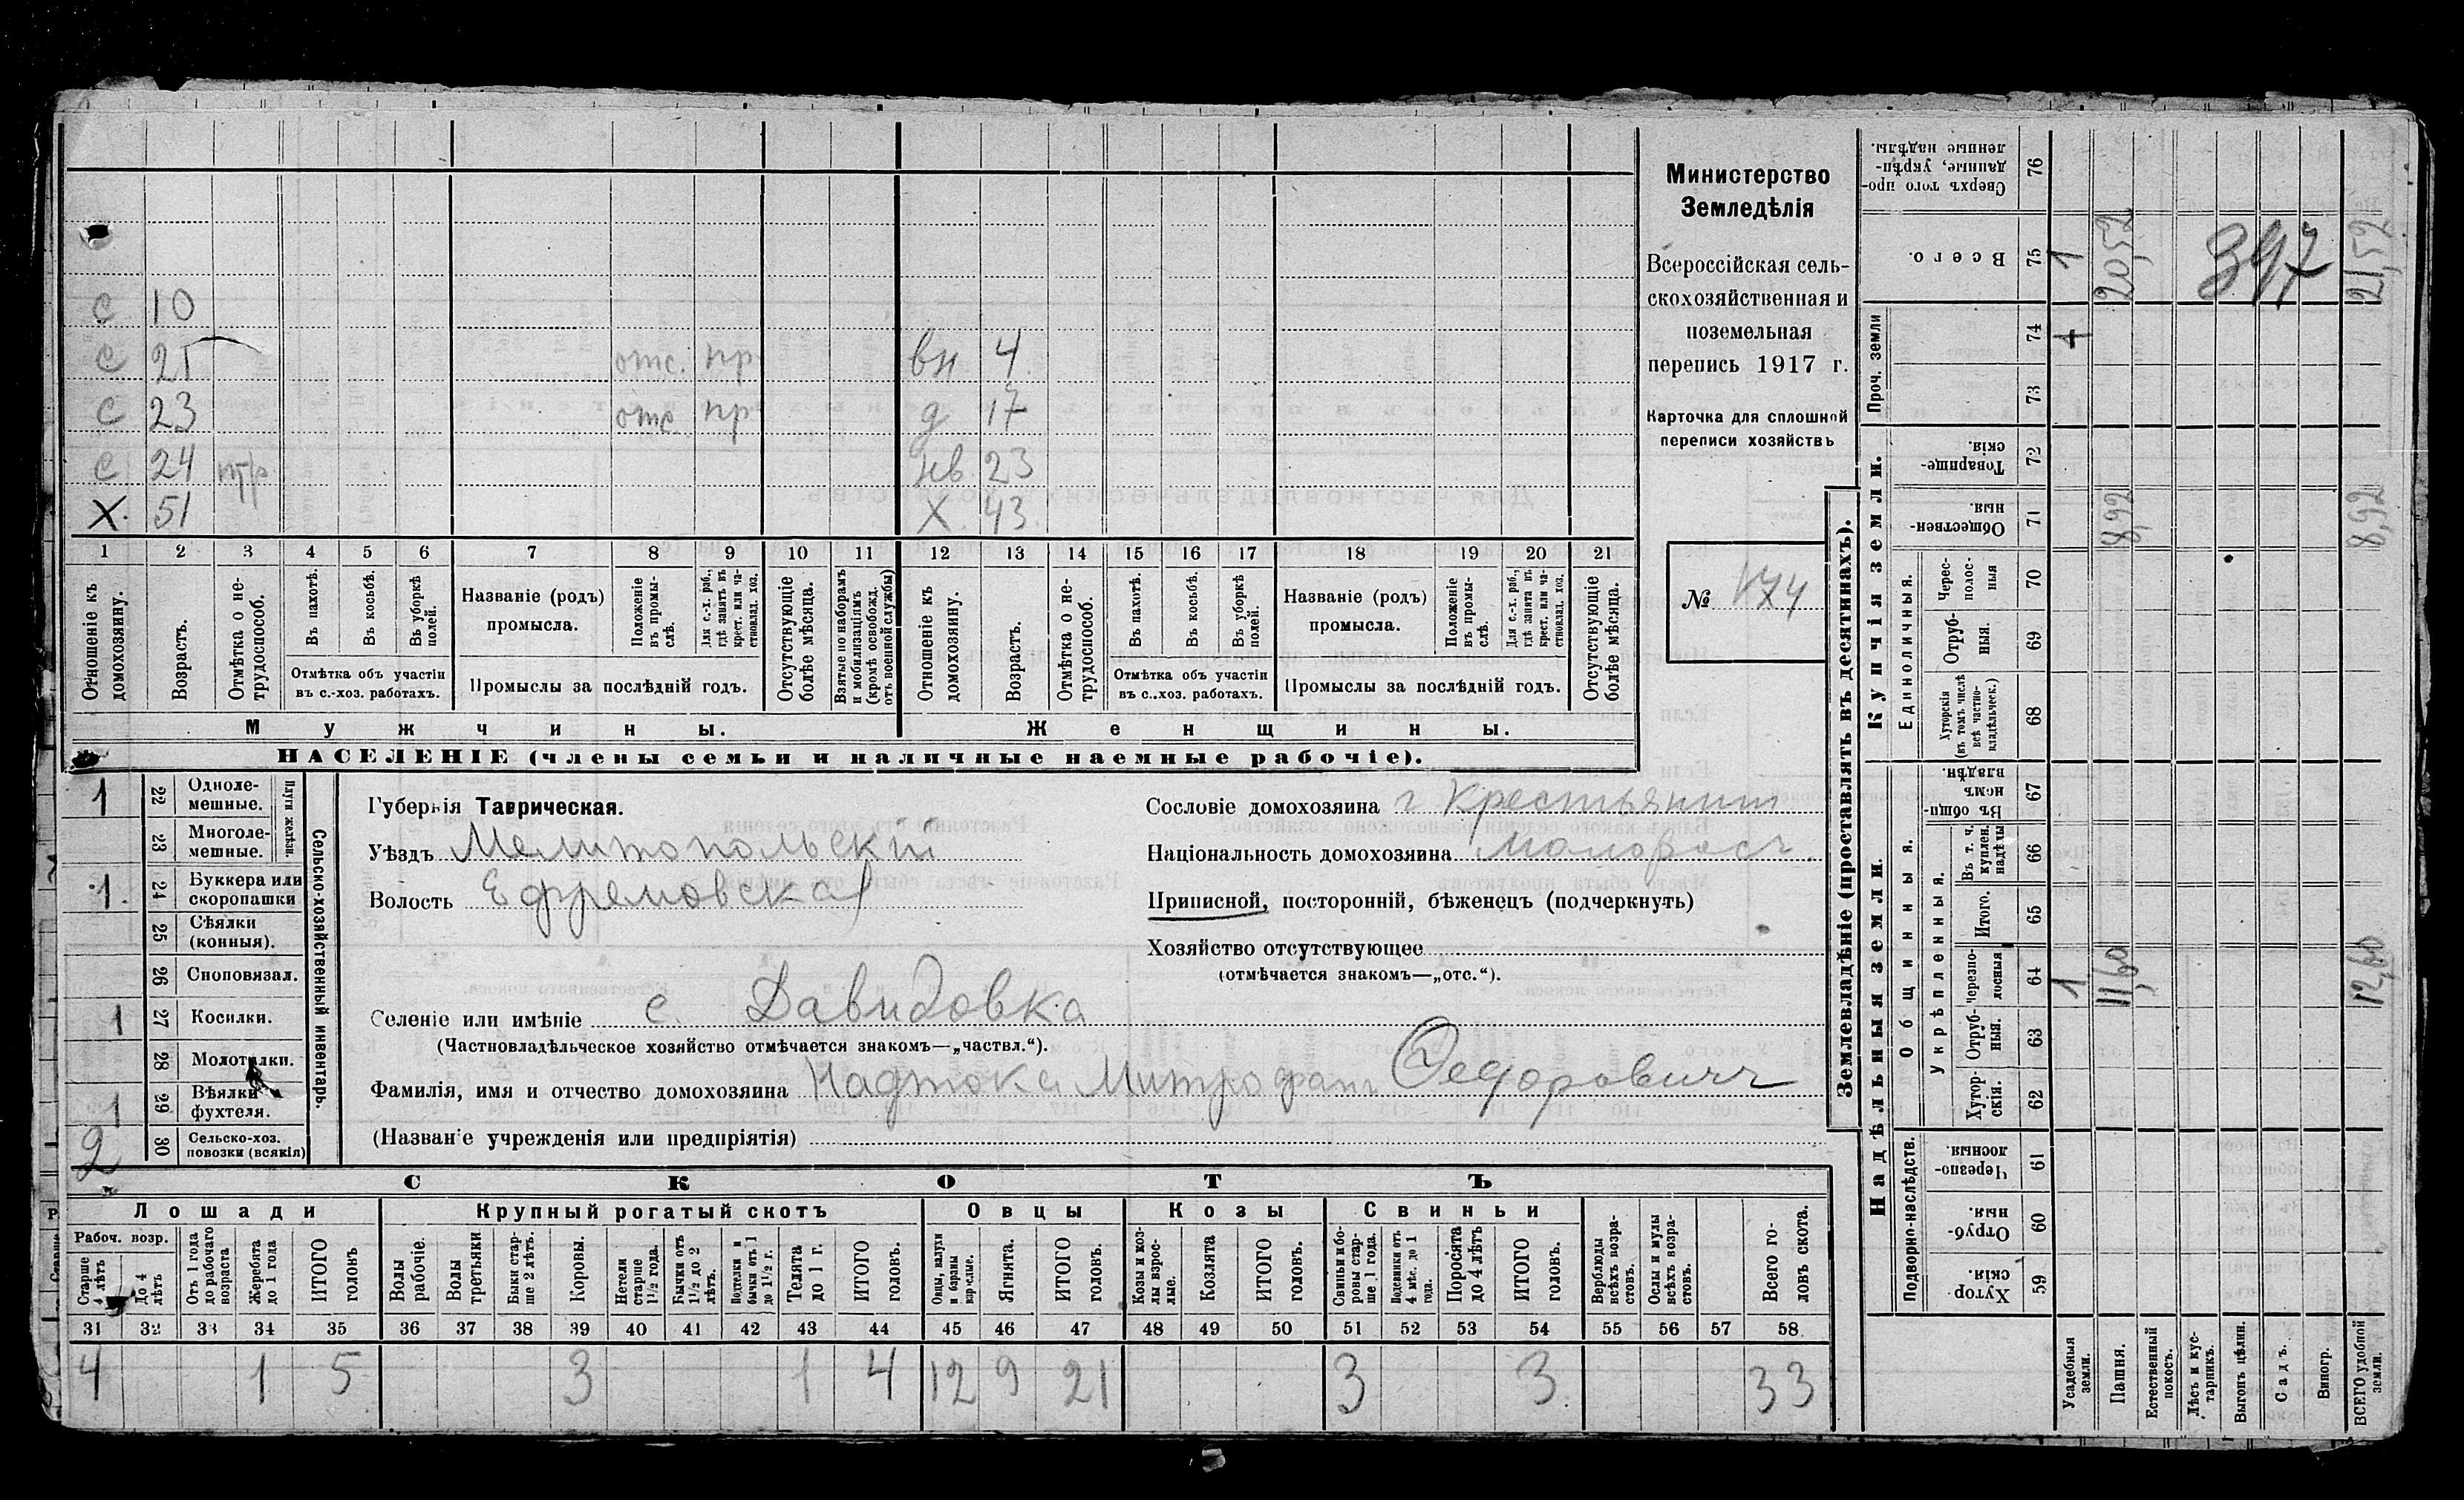 С 10
С 21 отс. пр вн 4
С 23 отс пр д 17
С 24 нв 23
Х. 51 Х. 43
1 2 3 4 5 6 7 8 9 10 11 12 13 14 15 16 17 18 19 20 21
Отношеніе къ домохозяину.
Возрастъ.
Отмѣтка о нетрудоспособ.
Въ пахотѣ.
Въ косьбѣ.
Въ уборкѣ полей.
Отмѣтка объ участіи
въ с.-хоз. работахъ.
Названіе (родъ)
промысла.
Положеніе въ промыслѣ.
Для с.-х. раб., гдѣ занятъ въ крест. или частновлад. хоз.
Промыслы за послѣдній годъ.
Отсутствующіе болѣе мѣсяца.
Взятые по наборамъ и мобилизаціямъ (кромѣ освобожд. отъ военной службы)
Отношеніе къ домохозяину.
Возрастъ.
Отмѣтка о нетрудоспособ.
Въ пахотѣ.
Въ косьбѣ.
Въ уборкѣ полей.
Отмѣтка объ участіи
въ с..хоз. работахъ.
Названіе (родъ)
промысла.
Положеніе въ промыслѣ.
Для с.-х. раб., гдѣ занята въ крест. или частновлад. хоз.
Промыслы за послѣдній годъ.
Отсутствующіе болѣе мѣсяца.
Мужчины.
Женщины.
НАСЕЛЕНІЕ (члены семьи и наличные наемные рабочіе).
Министерство
Земледѣлія
Всероссійская сель-
скохозяйственная и
поземельная
перепись 1917 г.
Карточка для сплошной
переписи хозяйствъ
№ 174
1 22 Одноле-
мешные.
23 Многоле-
мешные.
Плуги желѣзн.
1 24 Буккера или
скоропашки
25 Сѣялки
(конныя).
26 Сноповязал.
1 27 Косилки.
28 Молотилки.
1 29 Вѣялки
фухтеля.
2 30 Сельско-хоз.
повозки (всякія)
Сельско-хозяйственный инвентарь.
Губернія Таврическая.
Уѣздъ Мелитопольскій
Волость Ефремовская
Селеніе или имѣніе с. Давидовка
(Частновладѣльческое хозяйство отмѣчается знакомъ—„частвл.“).
Фамилія, имя и отчество домохозяина Надтока Митрофанъ Федоровичъ
(Названіе учрежденія или предпріятія)
Сословіе домохозяина Крестьянинъ
Національность домохозяина Малоросъ.
Приписной, посторонній, бѣженецъ (подчеркнуть)
Хозяйство отсутствующее
(отмѣчается знакомъ—„отс.“).
СКОТЪ
Лошади Крупный рогатый скотъ Овцы Козы Свиньи
Рабоч. возр.
Старше 4 лѣтъ
До 4 лѣтъ
Отъ 1 года до рабочаго возраста
Жеребята до 1 года
ИТОГО головъ
Волы рабочіе.
Волы третьяки
Быки старше 2 лѣтъ.
Коровы.
Нетели старше 1½ года.
Бычки отъ 1½ до 2 лѣтъ.
Подтелки и бычки отъ 1 до 1½ г.
Телята до 1 г.
ИТОГО головъ.
Овцы, валухи и бараны взрослые.
Ягнята.
ИТОГО головъ.
Козы и козлы взрослые.
Козлята
ИТОГО головъ.
Свиньи и боровы старше 1 года.
Подсвинки отъ 4 мѣс. до 1 года.
Поросята до 4 лѣтъ
ИТОГО головъ.
Верблюды всѣхъ возрастовъ.
Ослы и мулы всѣхъ возрастовъ.
Всего головъ скота.
31 32 33 34 35 36 37 38 39 40 41 42 43 44 45 46 47 48 49 50 51 52 53 54 55 56 57 58
4 1 5 3 1 4 12 9 21 3 3 33
Землевладѣніе (проставлять въ десятинахъ).
Надѣльныя земли.
Купчія земли.
Проч. земли
Подворно-наслѣдств.
Общинныя.
Укрѣпленныя.
Единоличныя.
Сверхъ того проданные, укрѣпленные надѣлы. 76
Всего. 75 1 20,52 21,52
397
74 1
73
Товарищескія. 72
Общественныя. 71 8,92 8,92
Чересполосныя 70
Отрубныя. 69
Хуторскія (въ томъ числѣ всѣ частновладѣльческ.) 68
Въ общинномъ владѣн. 67
Въ т. ч. куплен. надѣлы 66
Итого. 65
Черезполосныя 64 1 11,60 12,60
Отрубныя. 63
Хуторскія. 62
Черезполосныя 61
Отрубныя. 60
Хуторскія. 59
Усадебныя земли.
Пашня.
Естественный покосъ.
Лѣсъ и кустарникъ.
Выгонъ цѣлин.
Садъ.
Виногр.
ВСЕГО удобной земли.